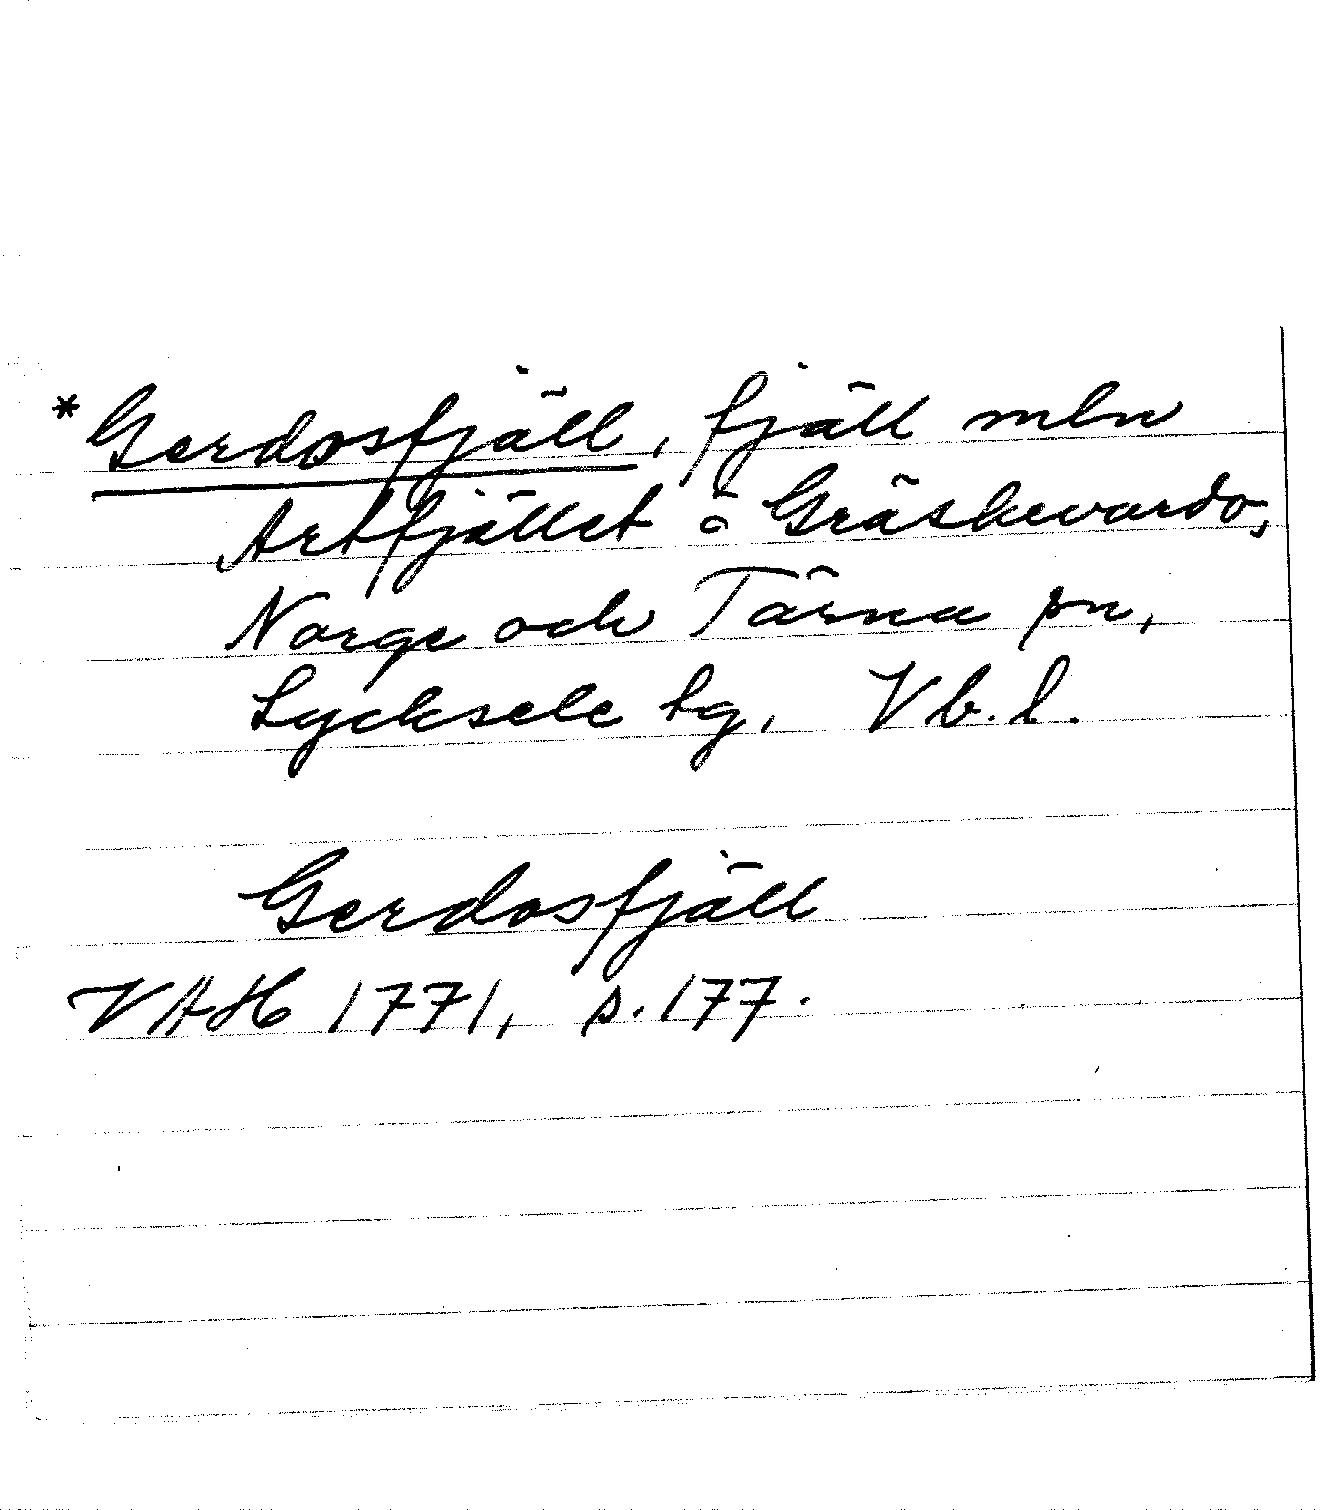 *Gerdosfjäll, fjäll mln
Artfjället o Gräskevardo,
Norge och Tärna sn,
Lycksele tg. Vb. l.
Gerdosfjäll
VAH 1771, s. 177.